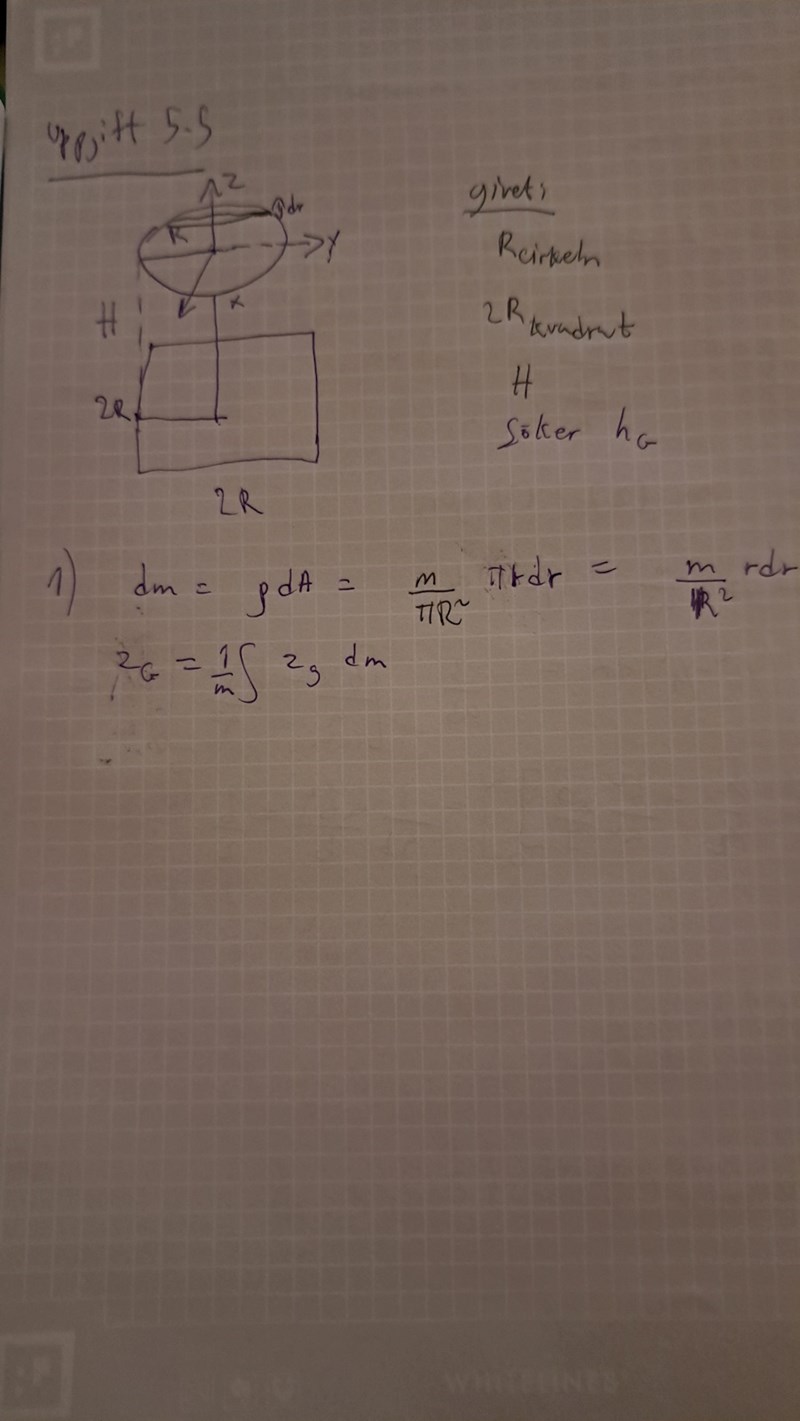 uppgift 5.5
z
dr
R
y
x
H
2R
2R
givet:
R cirkeln
2R kvadrat
H
Söker h_G
1) dm = ρdA = m/πR² πrdr = m/R² rdr
z_G = 1/m ∫ z_g dm
WHITELINES